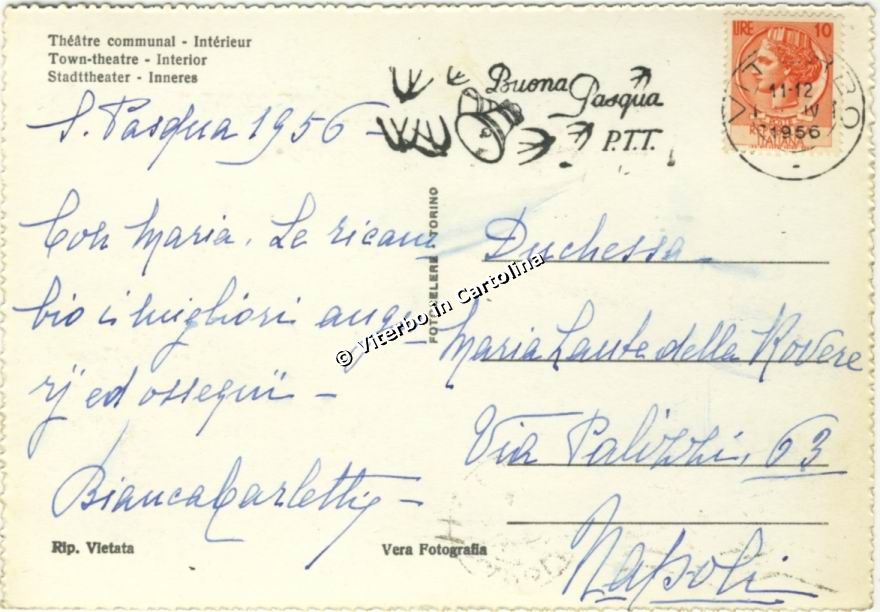 Théâtre communal - Intérieur
Town-theatre - Interior
Stadttheater - Inneres
S. Pasqua 1956 -
Con Maria. Le ricam
bio i migliori augu
rj ed ossequi -
Bianca Carletti -
Rip. Vietata
Vera Fotografia
FOTOCELERE - TORINO
© Viterbo in Cartolina
Buona
Pasqua
P.T.T.
LIRE 10
VITERBO
11-12
IV
1956
ITALIANA
Duchessa
Maria Lante della Rovere
Via Palizzi, 63
Napoli